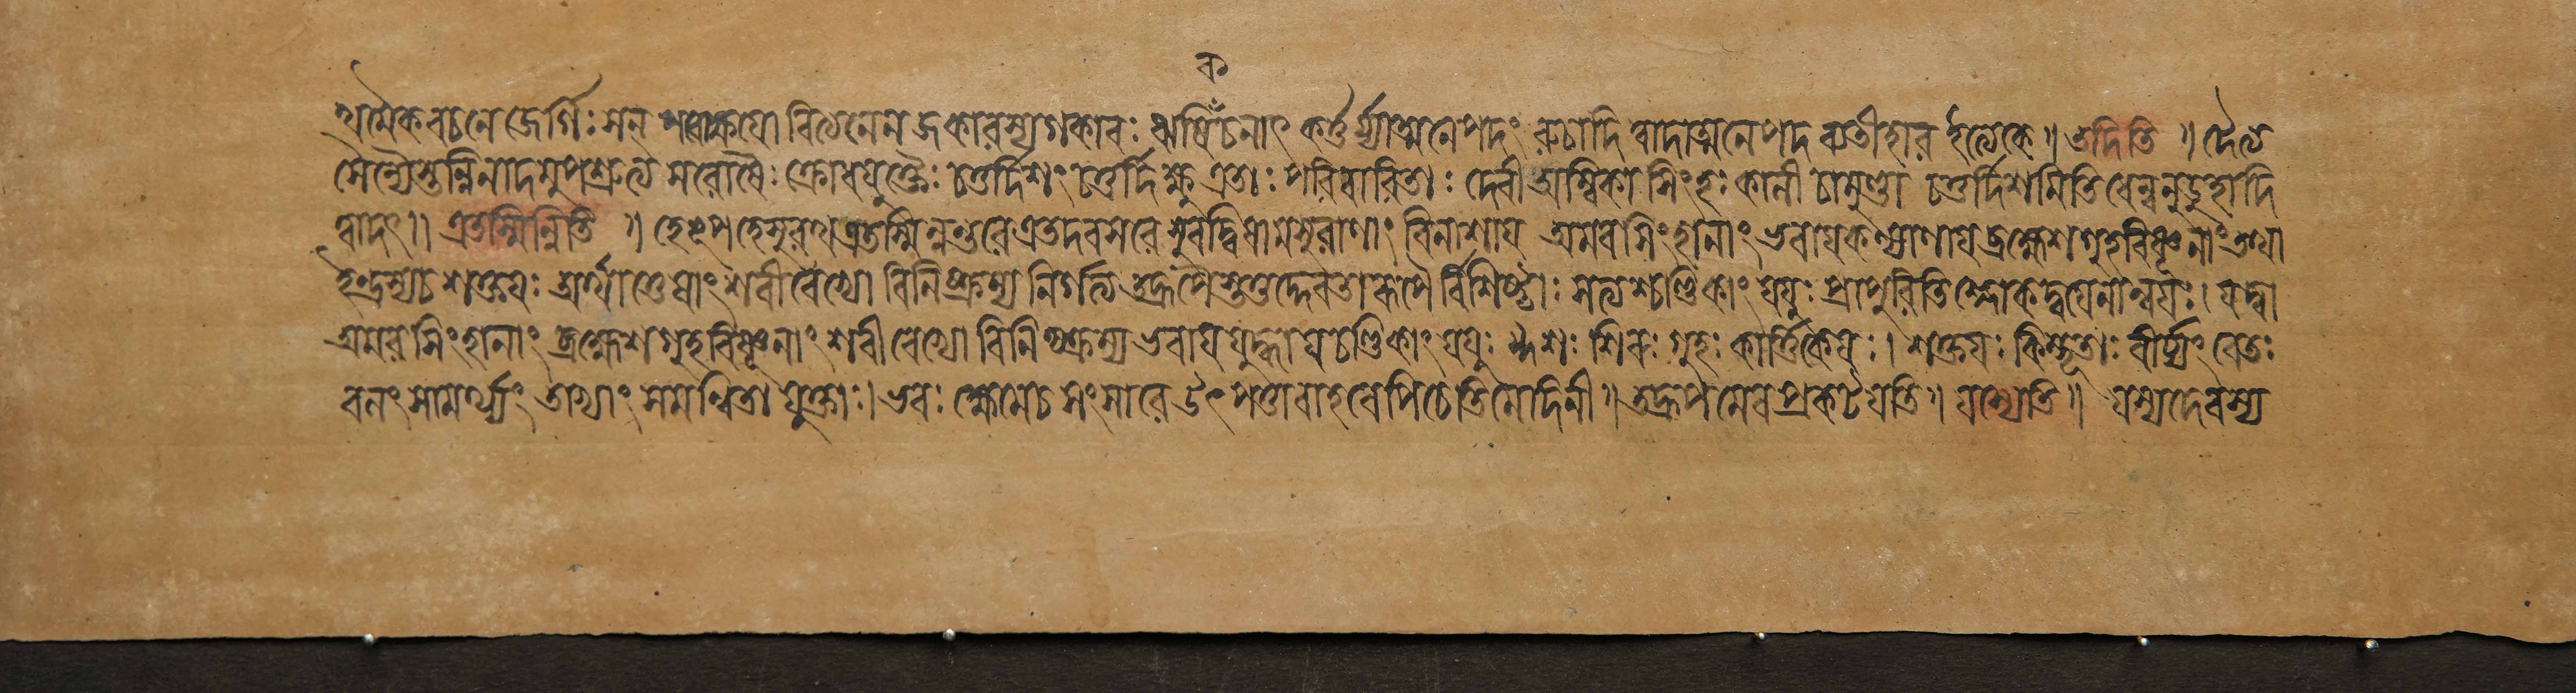 ক
থমৈকবচনে জের্গিঃ সন পরোক্ষযো বিত্যনেন জকারস্যগকাবঃ ঋষিচঁনাৎ কর্ত্তুর্য্যাত্মনেপদং রুচাদি ত্বাদাত্মনেপদ ব্যতীহার ইত্যেকে॥ তদিতি ॥ দৈত্য
সৈন্যৈস্তন্নিনাদমুপশ্রুত্য সরোষৈঃ ক্রোধযুক্তৈঃ চতুর্দিশং চতুর্দিক্ষু এতাঃ পরিবারিতাঃ দেবী অম্বিকা সিংহঃ কালী চামুণ্ডা চতুর্দিশমিতি ধেন্বনুডুহাদি
ত্বাদৎ॥ এতস্মিন্নিতি ॥ হে ভূপতে সুরথ এতস্মিন্নন্তরে এতদবসরে সুরদ্বিষামসুরাণাং বিনাশায অমরসিংহানাং ভবাযকল্যাণায ব্রহ্মেশগুহবিষ্ণূনাং তথা
ইন্দ্রস্যচ শক্তযঃ অর্থাত্তেষাং শরীরেভ্যো বিনিষ্ক্রম্য নির্গত্য তদ্রূপৈস্তত্তদ্দেবতারূপৈ র্বিশিষ্টাঃ সত্যশ্চণ্ডিকাং যযুঃ প্রাপুরিতি শ্লোকদ্বযেনান্বযঃ। যদ্বা
অমরসিংহানাং ব্রহ্মেশগুহবিষ্ণূনাং শরীরেভ্যো বিনিষ্ক্রম্য ভবায যুদ্ধায চণ্ডিকাং যযুঃ ঈশঃ শিবঃ গুহঃ কার্ত্তিকেযঃ। শক্তযঃ কিম্ভূতাঃ বীর্য্যং রেতঃ
বলং সামর্থ্যং তাভ্যাং সমন্বিতা যুক্তাঃ। ভবঃ ক্ষেমেচ সংসারে উৎপত্তাবাহবেপিচেতি মেদিনী॥ তদ্রূপমেব প্রকটযতি॥ যস্যেতি॥ যস্যদেবস্য